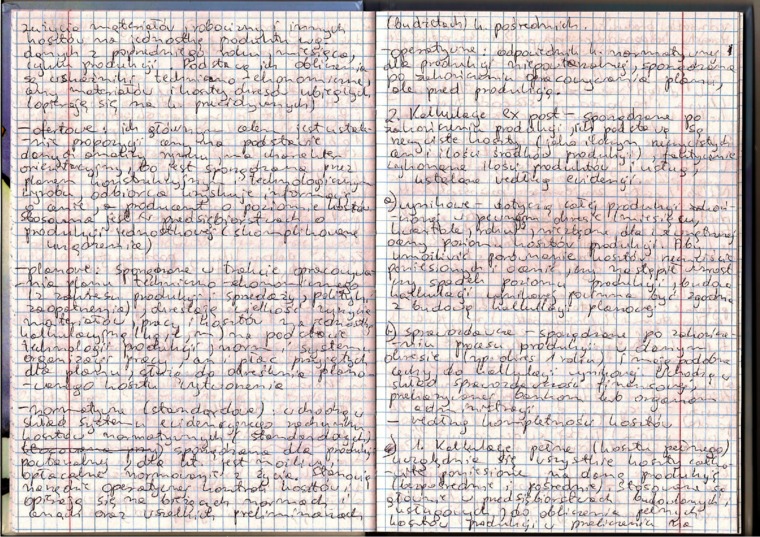 zużycia materiałów, robocizny i innych
kosztów na jednostkę produktu wg
danych z poprzedniego roku, miesiąca,
cyklu produkcji. Podstawą ich obliczenia
są wskaźniki techniczno-ekonomiczne,
ceny materiałów i koszty okresów ubiegłych
(opierają się na k. precydywnych)
-ofertowe: ich głównym celem jest ustale-
-nie propozycji ceny na podstawie
danych i analizy rynku, ma charakter
orientacyjny, bo jest sporządzana przed
planem konstrukcyjnym i technologicznym
wyrobu, odbiorca uzyskuje informację
o cenie, a producent o poziomie kosztów
stosowana jest w przedsiębiorstwach o
produkcji jednostkowej (skomplikowane
urządzenia)
-planowe: sporządzane w trakcie opracowywa-
-nia planu techniczno-ekonomicznego
(z zakresu produkcji, sprzedaży, polityki
zaopatrzenia), określają wielkość zużycia
materiałów, pracy i kosztów na jednostkę
kalkulacyjną na podstawie
technologii produkcji, norm, systemu
organizacji pracy, cen, płac przyjętych
dla planu, służą do określenia plano-
-wanego kosztu wytworzenia
-normatywne (standardowe): wchodzą w
skład systemu ewidencyjnego rachunku
kosztów normatywnych (standardowych),
sporządzane dla produkcji
powtarzalnej, dla kt. jest możliwe i
opłacalne normowanie zużycia. Stanowią
narzędzie operatywnej kontroli kosztów i
opierają się na bieżących normach i
cenach oraz wszelkich preliminarzach
(budżetach) k. pośrednich.
-operatywne: odpowiednik k. normatywnej
dla produkcji niepowtarzalnej, sporządzana
po zakończeniu opracowywania planu,
ale przed produkcją.
2. Kalkulacje ex post - sporządzane po
zakończeniu produkcji, ich podstawą są
rzeczywiste koszty (jako iloczyn rzeczywistych
cen i ilości środków produkcji), faktycznie
wykonane ilości produktów i usług,
ustalone według ewidencji.
a) wynikowe - dotyczą całej produkcji zakoń-
-czonej w pewnym okresie (miesiącu,
kwartale, roku), niezbędne dla wewnętrznej
oceny poziomu kosztów produkcji. Aby
umożliwić porównanie kosztów rzeczywiście
poniesionych i ocenić, czy nastąpił wzrost
czy spadek poziomu produkcji, budowa
kalkulacji wynikowej powinna być zgodna
z budową kalkulacji planowej
b) sprawozdawcze - sporządzane po zakończe-
-niu procesu produkcji w danym
okresie (np. okres 1 roku) i mają podobne
cechy do kalkulacji wynikowej. Wchodzą w
skład sprawozdawczości finansowej,
przekazywanej bankom lub organom
administracji
- według kompletności kosztów
1. Kalkulacje pełne (kosztu pełnego)
uwzględnia się wszystkie koszty całko-
-wite poniesione na daną produkcję
(bezpośrednie i pośrednie), stosowane są
głównie w przedsiębiorstwach budowlanych i
usługowych do obliczenia pełnych
kosztów produkcji w przeliczeniu na